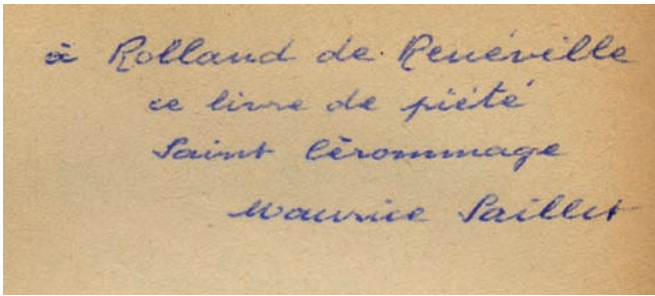 à Rolland de Renéville
ce livre de piété
Saint Cérommage
Maurice Saillet